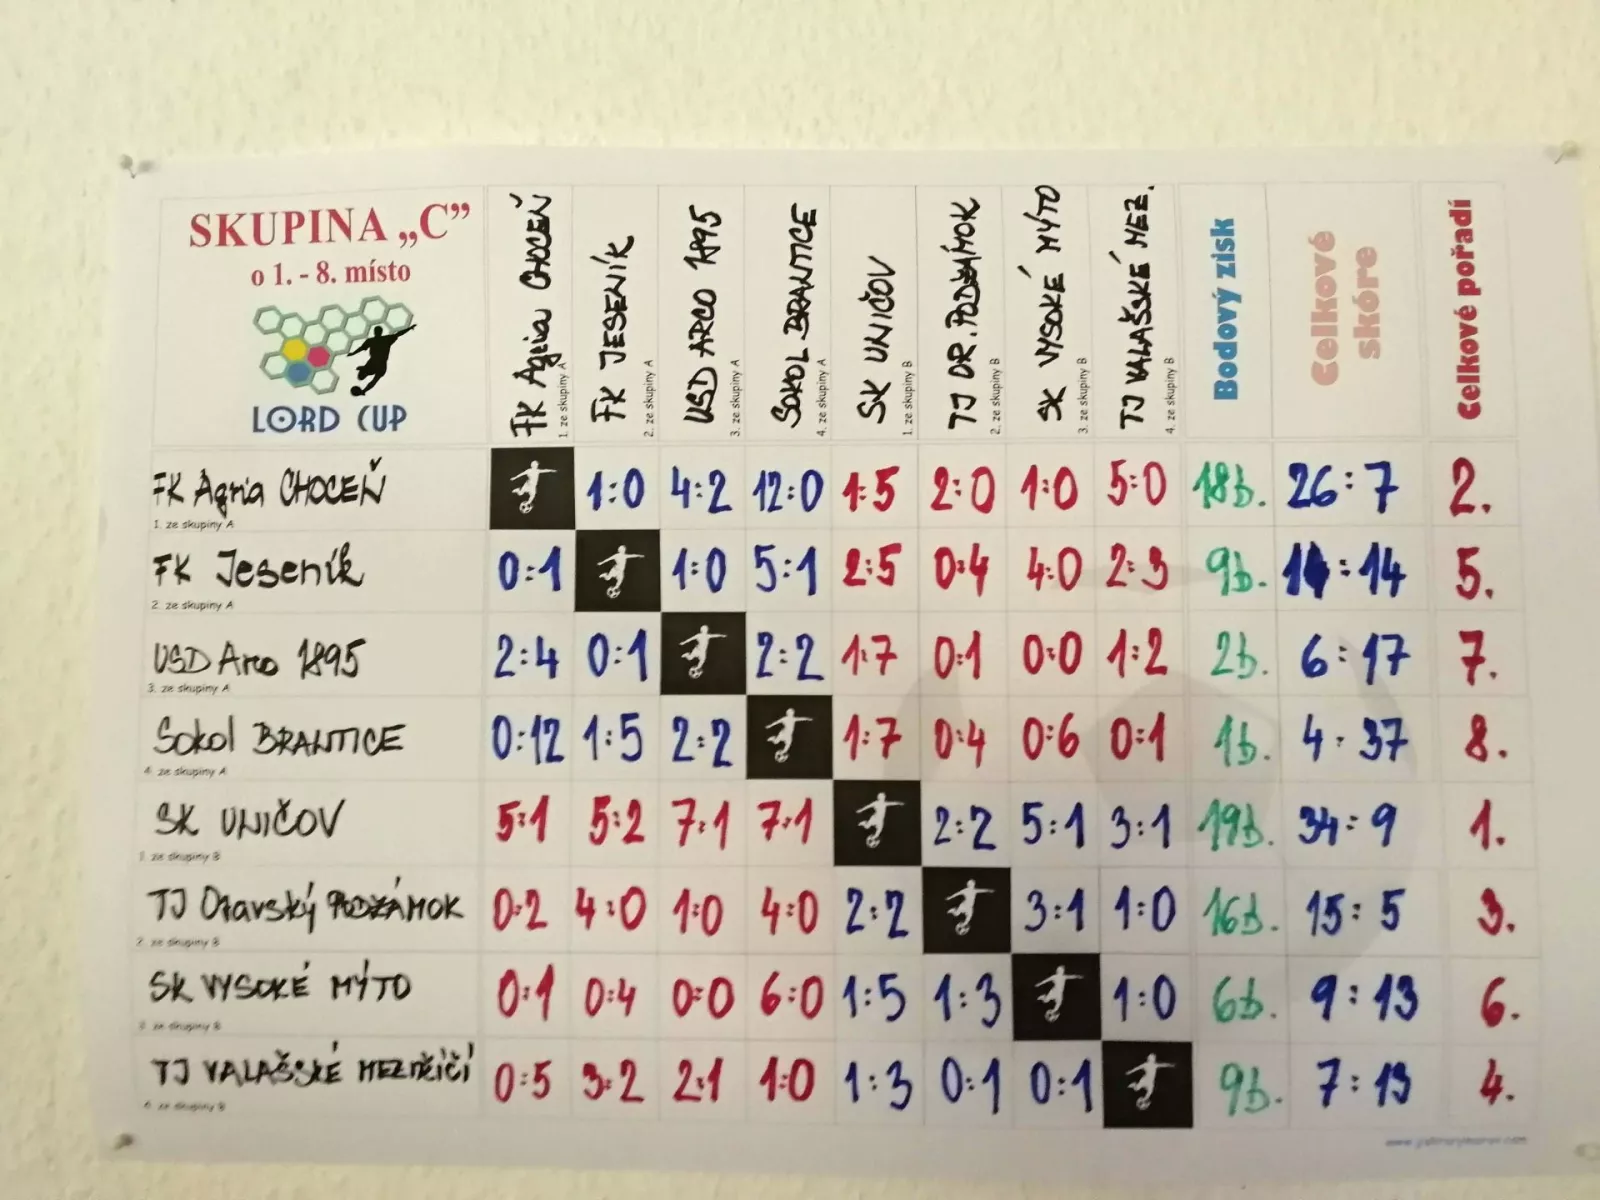 SKUPINA „C”
o 1. - 8. místo
LORD CUP
FK Agria CHOCEŇ
1. ze skupiny A
FK JESENÍK
2. ze skupiny A
USD ARCO 1895
3. ze skupiny A
SOKOL BRANTICE
4. ze skupiny A
SK UNIČOV
1. ze skupiny B
TJ OR. PODZÁMOK
2. ze skupiny B
SK VYSOKÉ MÝTO
3. ze skupiny B
TJ VALAŠSKÉ MEZ.
4. ze skupiny B
Bodový zisk
Celkové skóre
Celkové pořadí
FK Agria CHOCEŇ 1:0 4:2 12:0 1:5 2:0 1:0 5:0 18b. 26:7 2.
1. ze skupiny A
FK Jeseník 0:1 1:0 5:1 2:5 0:4 4:0 2:3 9b. 14:14 5.
2. ze skupiny A
USD Arco 1895 2:4 0:1 2:2 1:7 0:1 0:0 1:2 2b. 6:17 7.
3. ze skupiny A
Sokol BRANTICE 0:12 1:5 2:2 1:7 0:4 0:6 0:1 1b. 4:37 8.
4. ze skupiny A
SK UNIČOV 5:1 5:2 7:1 7:1 2:2 5:1 3:1 19b. 34:9 1.
1. ze skupiny B
TJ Oravský PODZÁMOK 0:2 4:0 1:0 4:0 2:2 3:1 1:0 16b. 15:5 3.
2. ze skupiny B
SK VYSOKÉ MÝTO 0:1 0:4 0:0 6:0 1:5 1:3 1:0 6b. 9:13 6.
3. ze skupiny B
TJ VALAŠSKÉ MEZIŘÍČÍ 0:5 3:2 2:1 1:0 1:3 0:1 0:1 9b. 7:13 4.
4. ze skupiny B